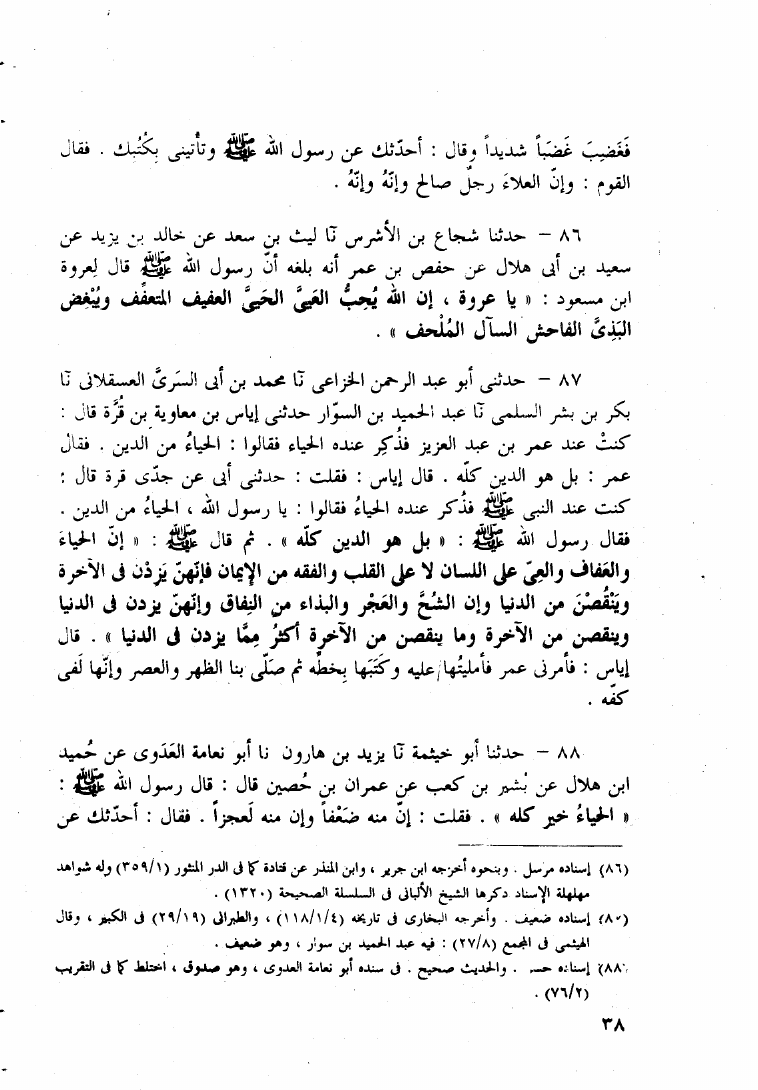 فَغَضِبَ غَضَباً شديداً وقال : أحدّثك عن رسول الله ﷺ وتأتينى بِكُتُبك . فقال
القوم : وإنّ العلاءَ رجلٌ صالح وإنّهُ وإنّهُ .
٨٦ – حدثنا شجاع بن الأشرس نَا ليث بن سعد عن خالد بن يزيد عن
سعيد بن أبى هلال عن حفص بن عمر أنه بلغه أنّ رسول الله ﷺ قال لِعروة
ابن مسعود : « يا عروة ، إن الله يُحِبُّ العَيىَّ الحَيىَّ العفيف المتعفِّف ويُبْغِض
البَذِىَّ الفاحش السآل المُلْحف » .
٨٧ – حدثنى أبو عبد الرحمن الخزاعى نَا محمد بن أبى السَرىَّ العسقلانى نَا
بكر بن بشر السلمى نَا عبد الحميد بن السوّار حدثنى إياس بن معاوية بن قُرَّة قال :
كنتُ عند عمر بن عبد العزيز فذُكِر عنده الحياء فقالوا : الحياءُ من الدين . فقال
عمر : بل هو الدين كلّه . قال إياس : فقلت : حدثنى أبى عن جدّى قرة قال :
كنت عند النبى ﷺ فذُكر عنده الحياءُ فقالوا : يا رسول الله ، الحياءُ من الدين .
فقال رسول الله ﷺ : « بل هو الدين كلّه » . ثم قال ﷺ : « إنّ الحياءَ
والعَفاف والعِىّ على اللسان لا على القلب والفقه من الإيمان فإنّهنّ يَزِدْن فى الآخرة
ويَنْقُصْنَ من الدنيا وإن الشُحَّ والعَجْر والبذاء من النِفاق وإنّهنّ يزدن فى الدنيا
وينقصن من الآخرة وما ينقصن من الآخرة أكثرُ مِمَّا يزدن فى الدنيا » . قال
إياس : فأمرنى عمر فأمليتُها عليه وكَتَبَها بِخطّه ثم صَلّى بنا الظهر والعصر وإنّها لَفى
كفّه .
٨٨ – حدثنا أبو خيثمة نَا يزيد بن هارون نا أبو نعامة العَدَوى عن حُميد
ابن هلال عن بُشير بن كعب عن عمران بن حُصين قال : قال رسول الله ﷺ :
« الحياءُ خير كله » . فقلت : إنّ منه ضَعْفاً وإن منه لَعجزاً . فقال : أحدّثك عن
(٨٦) إسناده مرسل . وبنحوه أخرجه ابن جرير ، وابن المنذر عن قتادة كما فى الدر المنثور (٣٥٩/١) وله شواهد
مهلهلة الإسناد ذكرها الشيخ الألبانى فى السلسلة الصحيحة (١٣٢٠) .
(٨٧) إسناده ضعيف . وأخرجه البخارى فى تاريخه (١١٨/١/٤) ، والطبرانى (٢٩/١٩) فى الكبير ، وقال
الهيثمى فى المجمع (٢٧/٨) : فيه عبد الحميد بن سوار ، وهو ضعيف .
(٨٨) إسناده حسن . والحديث صحيح . فى سنده أبو نعامة العدوى ، وهو صدوق ، اختلط كما فى التقريب
(٧٦/٢) .
٣٨